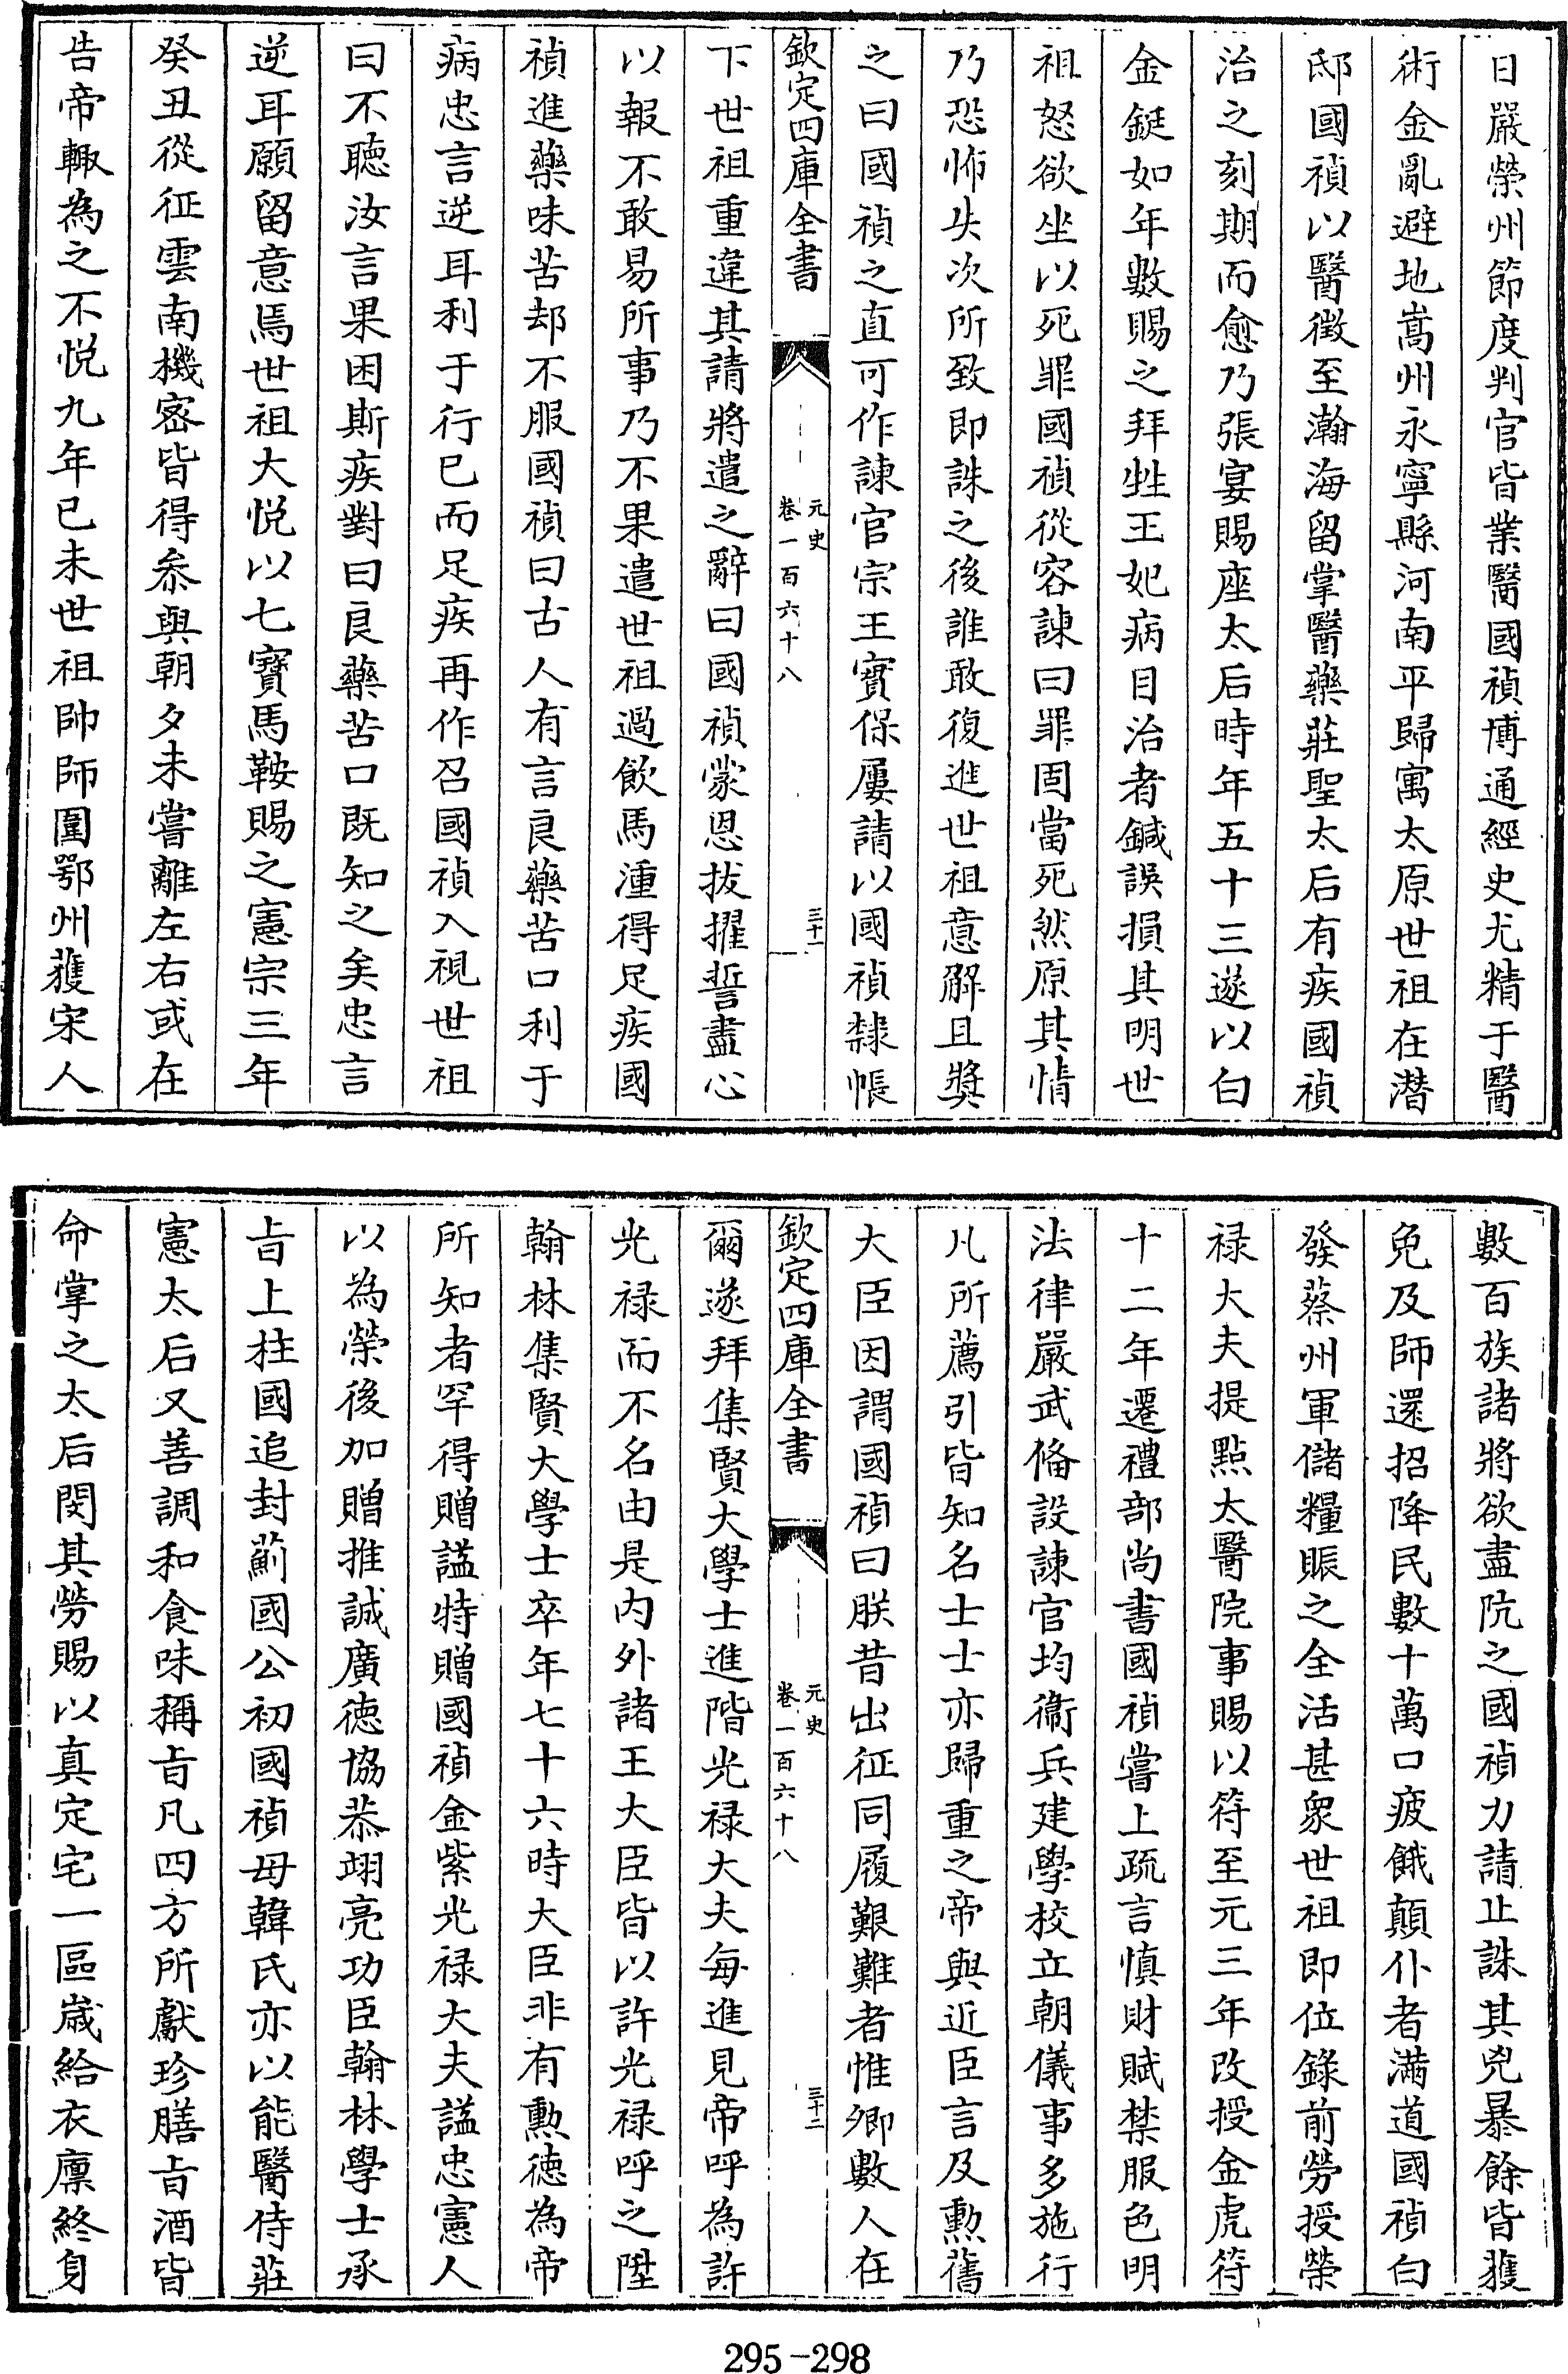 曰嚴榮州節度判官皆業醫國禎博通經史尤精于醫
術金亂避地嵩州永寧縣河南平歸寓太原世祖在潛
邸國禎以醫徴至瀚海留掌醫藥莊聖太后有疾國禎
治之刻期而愈乃張宴賜座太后時年五十三遂以白
金鋌如年數賜之拜甡王妃病目治者鍼誤損其明世
祖怒欲坐以死罪國禎從容諫曰罪固當死然原其情
乃恐怖失次所致即誅之後誰敢復進世祖意解且奬
之曰國禎之直可作諫官宗王實保屢請以國禎隸帳
欽定四庫全書
元史
卷一百六十八
三十一
下世祖重違其請將遣之辭曰國禎蒙恩拔擢誓盡心
以報不敢易所事乃不果遣世祖過飲馬湩得足疾國
禎進藥味苦却不服國禎曰古人有言良藥苦口利于
病忠言逆耳利于行已而足疾再作召國禎入視世祖
曰不聴汝言果困斯疾對曰良藥苦口既知之矣忠言
逆耳願留意焉世祖大悦以七寶馬鞍賜之憲宗三年
癸丑從征雲南機宻皆得參與朝夕未嘗離左右或在
告帝輙為之不悦九年已未世祖帥師圍鄂州獲宋人
數百族諸將欲盡阬之國禎力請止誅其兇暴餘皆獲
免及師還招降民數十萬口疲餓顛仆者滿道國禎白
發蔡州軍儲糧賑之全活甚衆世祖即位錄前勞授榮
禄大夫提點太醫院事賜以符至元三年改授金虎符
十二年遷禮部尚書國禎嘗上疏言慎財賦禁服色明
法律嚴武備設諫官均衞兵建學校立朝儀事多施行
凡所薦引皆知名士士亦歸重之帝與近臣言及勲舊
大臣因謂國禎曰朕昔出征同履艱難者惟卿數人在
欽定四庫全書
元史
卷一百六十八
三十二
爾遂拜集賢大學士進階光禄大夫每進見帝呼為許
光禄而不名由是内外諸王大臣皆以許光禄呼之陞
翰林集賢大學士卒年七十六時大臣非有勲徳為帝
所知者罕得贈諡特贈國禎金紫光禄大夫諡忠憲人
以為榮後加贈推誠廣徳協恭翊亮功臣翰林學士承
㫖上柱國追封薊國公初國禎母韓氏亦以能醫侍莊
憲太后又善調和食味稱㫖凡四方所獻珍膳㫖酒皆
命掌之太后閔其勞賜以真定宅一區歳給衣廪終身
295-298